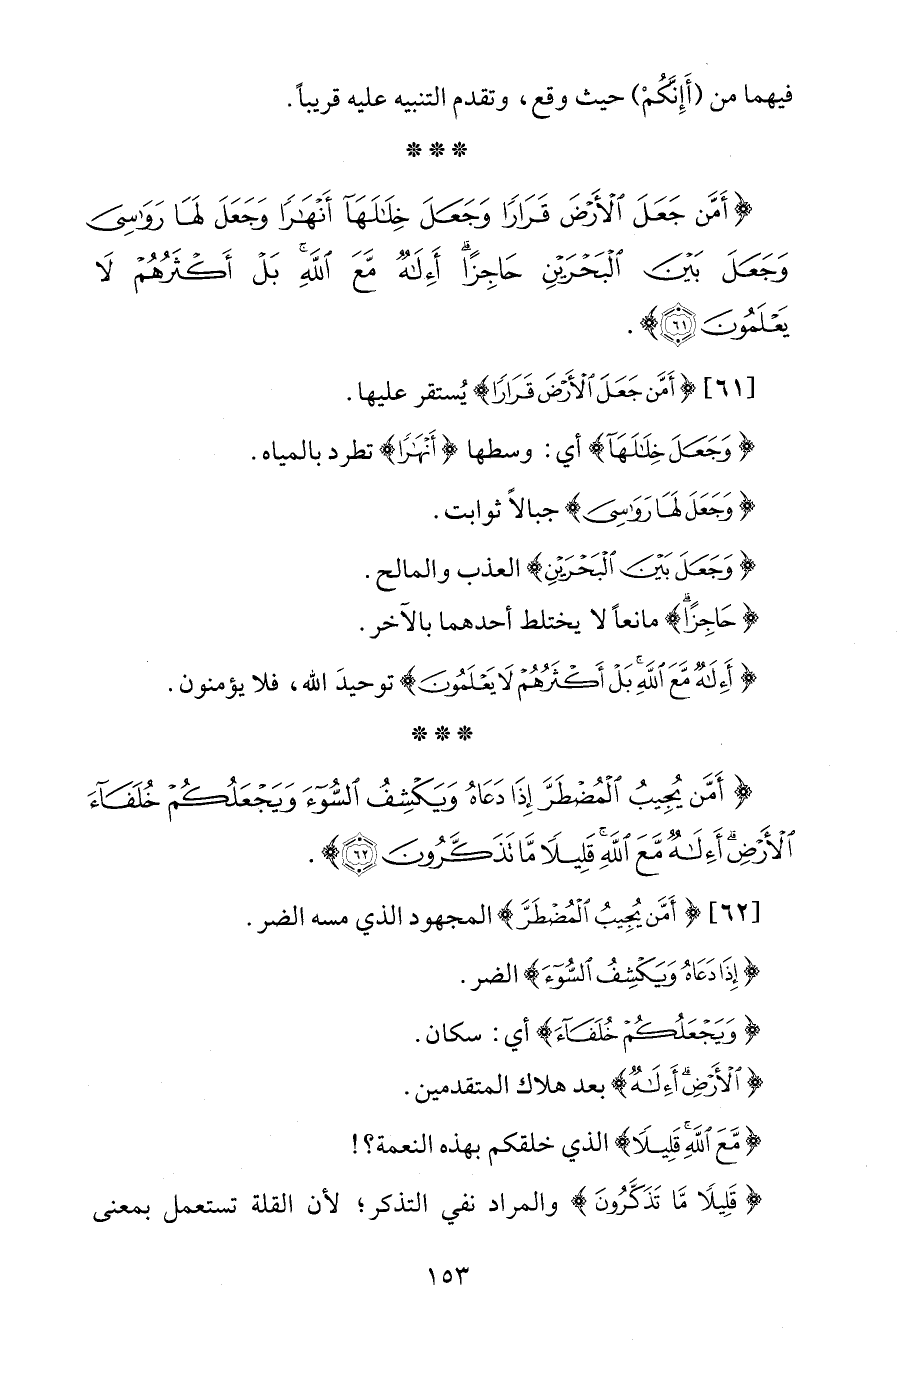 فيهما من (أَإِنَّكُمْ) حيث وقع، وتقدم التنبيه عليه قريباً.
***
﴿أَمَّن جَعَلَ ٱلْأَرْضَ قَرَارًا وَجَعَلَ خِلَٰلَهَآ أَنْهَٰرًا وَجَعَلَ لَهَا رَوَٰسِىَ
وَجَعَلَ بَيْنَ ٱلْبَحْرَيْنِ حَاجِزًاۗ أَءِلَٰهٌ مَّعَ ٱللَّهِۚ بَلْ أَكْثَرُهُمْ لَا
يَعْلَمُونَ ٦١﴾.
[٦١] ﴿أَمَّن جَعَلَ ٱلْأَرْضَ قَرَارًا﴾ يُستقر عليها.
﴿وَجَعَلَ خِلَٰلَهَآ﴾ أي: وسطها ﴿أَنْهَٰرًا﴾ تطرد بالمياه.
﴿وَجَعَلَ لَهَا رَوَٰسِىَ﴾ جبالاً ثوابت.
﴿وَجَعَلَ بَيْنَ ٱلْبَحْرَيْنِ﴾ العذب والمالح.
﴿حَاجِزًاۗ﴾ مانعاً لا يختلط أحدهما بالآخر.
﴿أَءِلَٰهٌ مَّعَ ٱللَّهِۚ بَلْ أَكْثَرُهُمْ لَا يَعْلَمُونَ﴾ توحيدَ الله، فلا يؤمنون.
***
﴿أَمَّن يُجِيبُ ٱلْمُضْطَرَّ إِذَا دَعَاهُ وَيَكْشِفُ ٱلسُّوٓءَ وَيَجْعَلُكُمْ خُلَفَآءَ
ٱلْأَرْضِۗ أَءِلَٰهٌ مَّعَ ٱللَّهِۚ قَلِيلًا مَّا تَذَكَّرُونَ ٦٢﴾.
[٦٢] ﴿أَمَّن يُجِيبُ ٱلْمُضْطَرَّ﴾ المجهود الذي مسه الضر.
﴿إِذَا دَعَاهُ وَيَكْشِفُ ٱلسُّوٓءَ﴾ الضر.
﴿وَيَجْعَلُكُمْ خُلَفَآءَ﴾ أي: سكان.
﴿ٱلْأَرْضِۗ أَءِلَٰهٌ﴾ بعد هلاك المتقدمين.
﴿مَّعَ ٱللَّهِۚ قَلِيلًا﴾ الذي خلقكم بهذه النعمة؟!
﴿قَلِيلًا مَّا تَذَكَّرُونَ﴾ والمراد نفي التذكر؛ لأن القلة تستعمل بمعنى
١٥٣